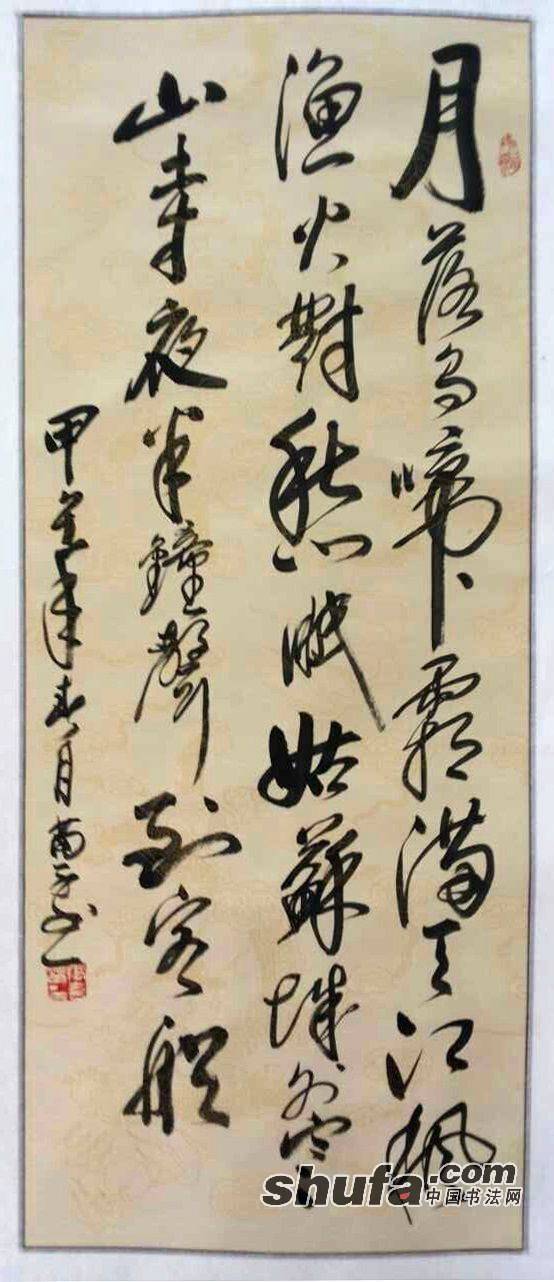 月落乌啼霜满天江枫
渔火對愁眠姑蘇城外寒
山寺夜半鐘聲到客船
甲午年春月
shufa.com
中国书法网